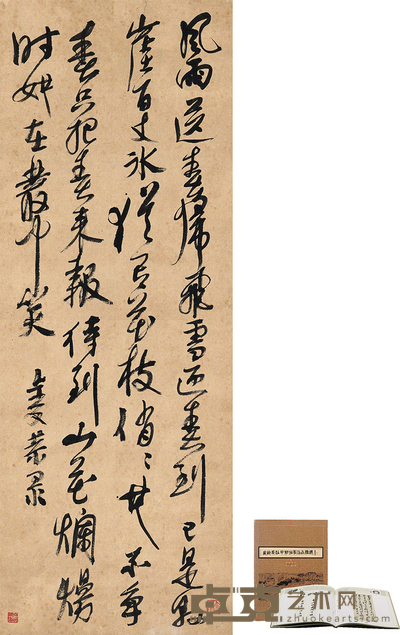 风雨送春归飛雪迎春到已是懸
崖百丈冰猶有花枝俏俏也不争
春只把春来報待到山花爛熳
时她在叢中笑
卓克艺术网
www.zhuokearts.com